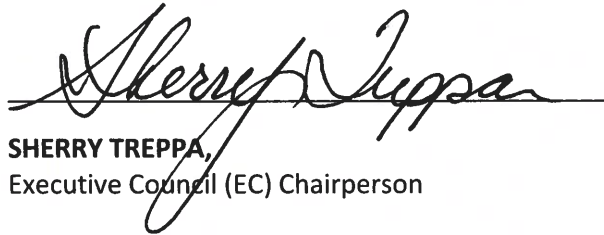 Sherry Treppa
SHERRY TREPPA,
Executive Council (EC) Chairperson